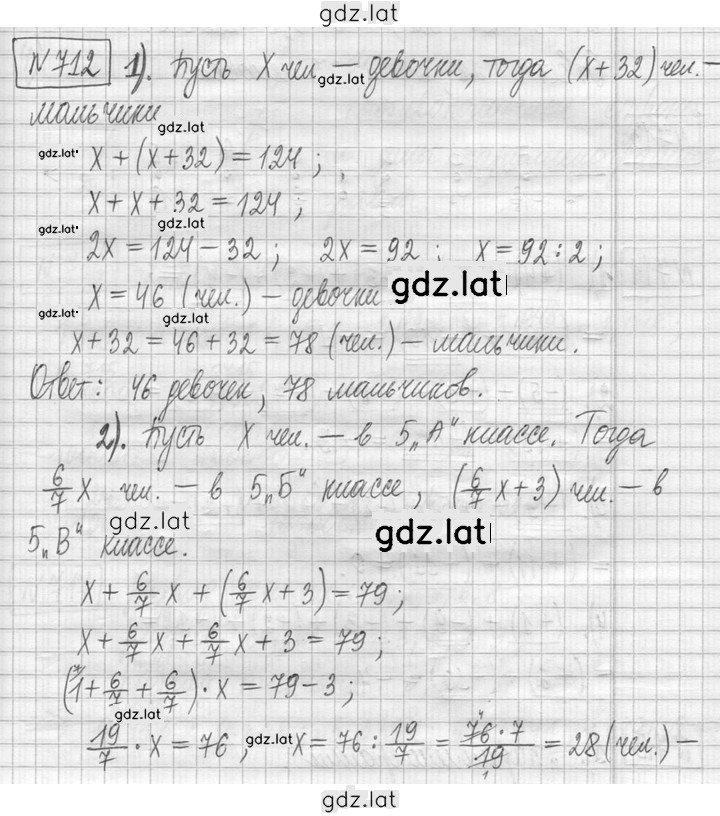 gdz.lat
№ 712 1). Пусть x чел. gdz.lat – девочки, тогда (x+32) чел. –
мальчики
gdz.lat
gdz.lat x + (x+32) = 124 ;
x + x + 32 = 124 ;
gdz.lat gdz.lat
2x = 124 – 32 ; 2x = 92 ; x = 92 : 2 ;
x = 46 (чел.) – девочки gdz.lat
gdz.lat gdz.lat
x + 32 = 46 + 32 = 78 (чел.) – мальчики.
Ответ: 46 девочек, 78 мальчиков.
2). Пусть x чел. – в 5„А“ классе. Тогда
6/7 x чел. – в 5„Б“ классе, (6/7 x + 3) чел. – в
gdz.lat gdz.lat
5„В“ классе.
x + 6/7 x + (6/7 x + 3) = 79 ;
x + 6/7 x + 6/7 x + 3 = 79 ;
(1 + 6/7 + 6/7) · x = 79 – 3 ;
gdz.lat
19/7 · x = 76 ; gdz.lat x = 76 : 19/7 = 76 · 7/19 = 28 (чел.) –
gdz.lat